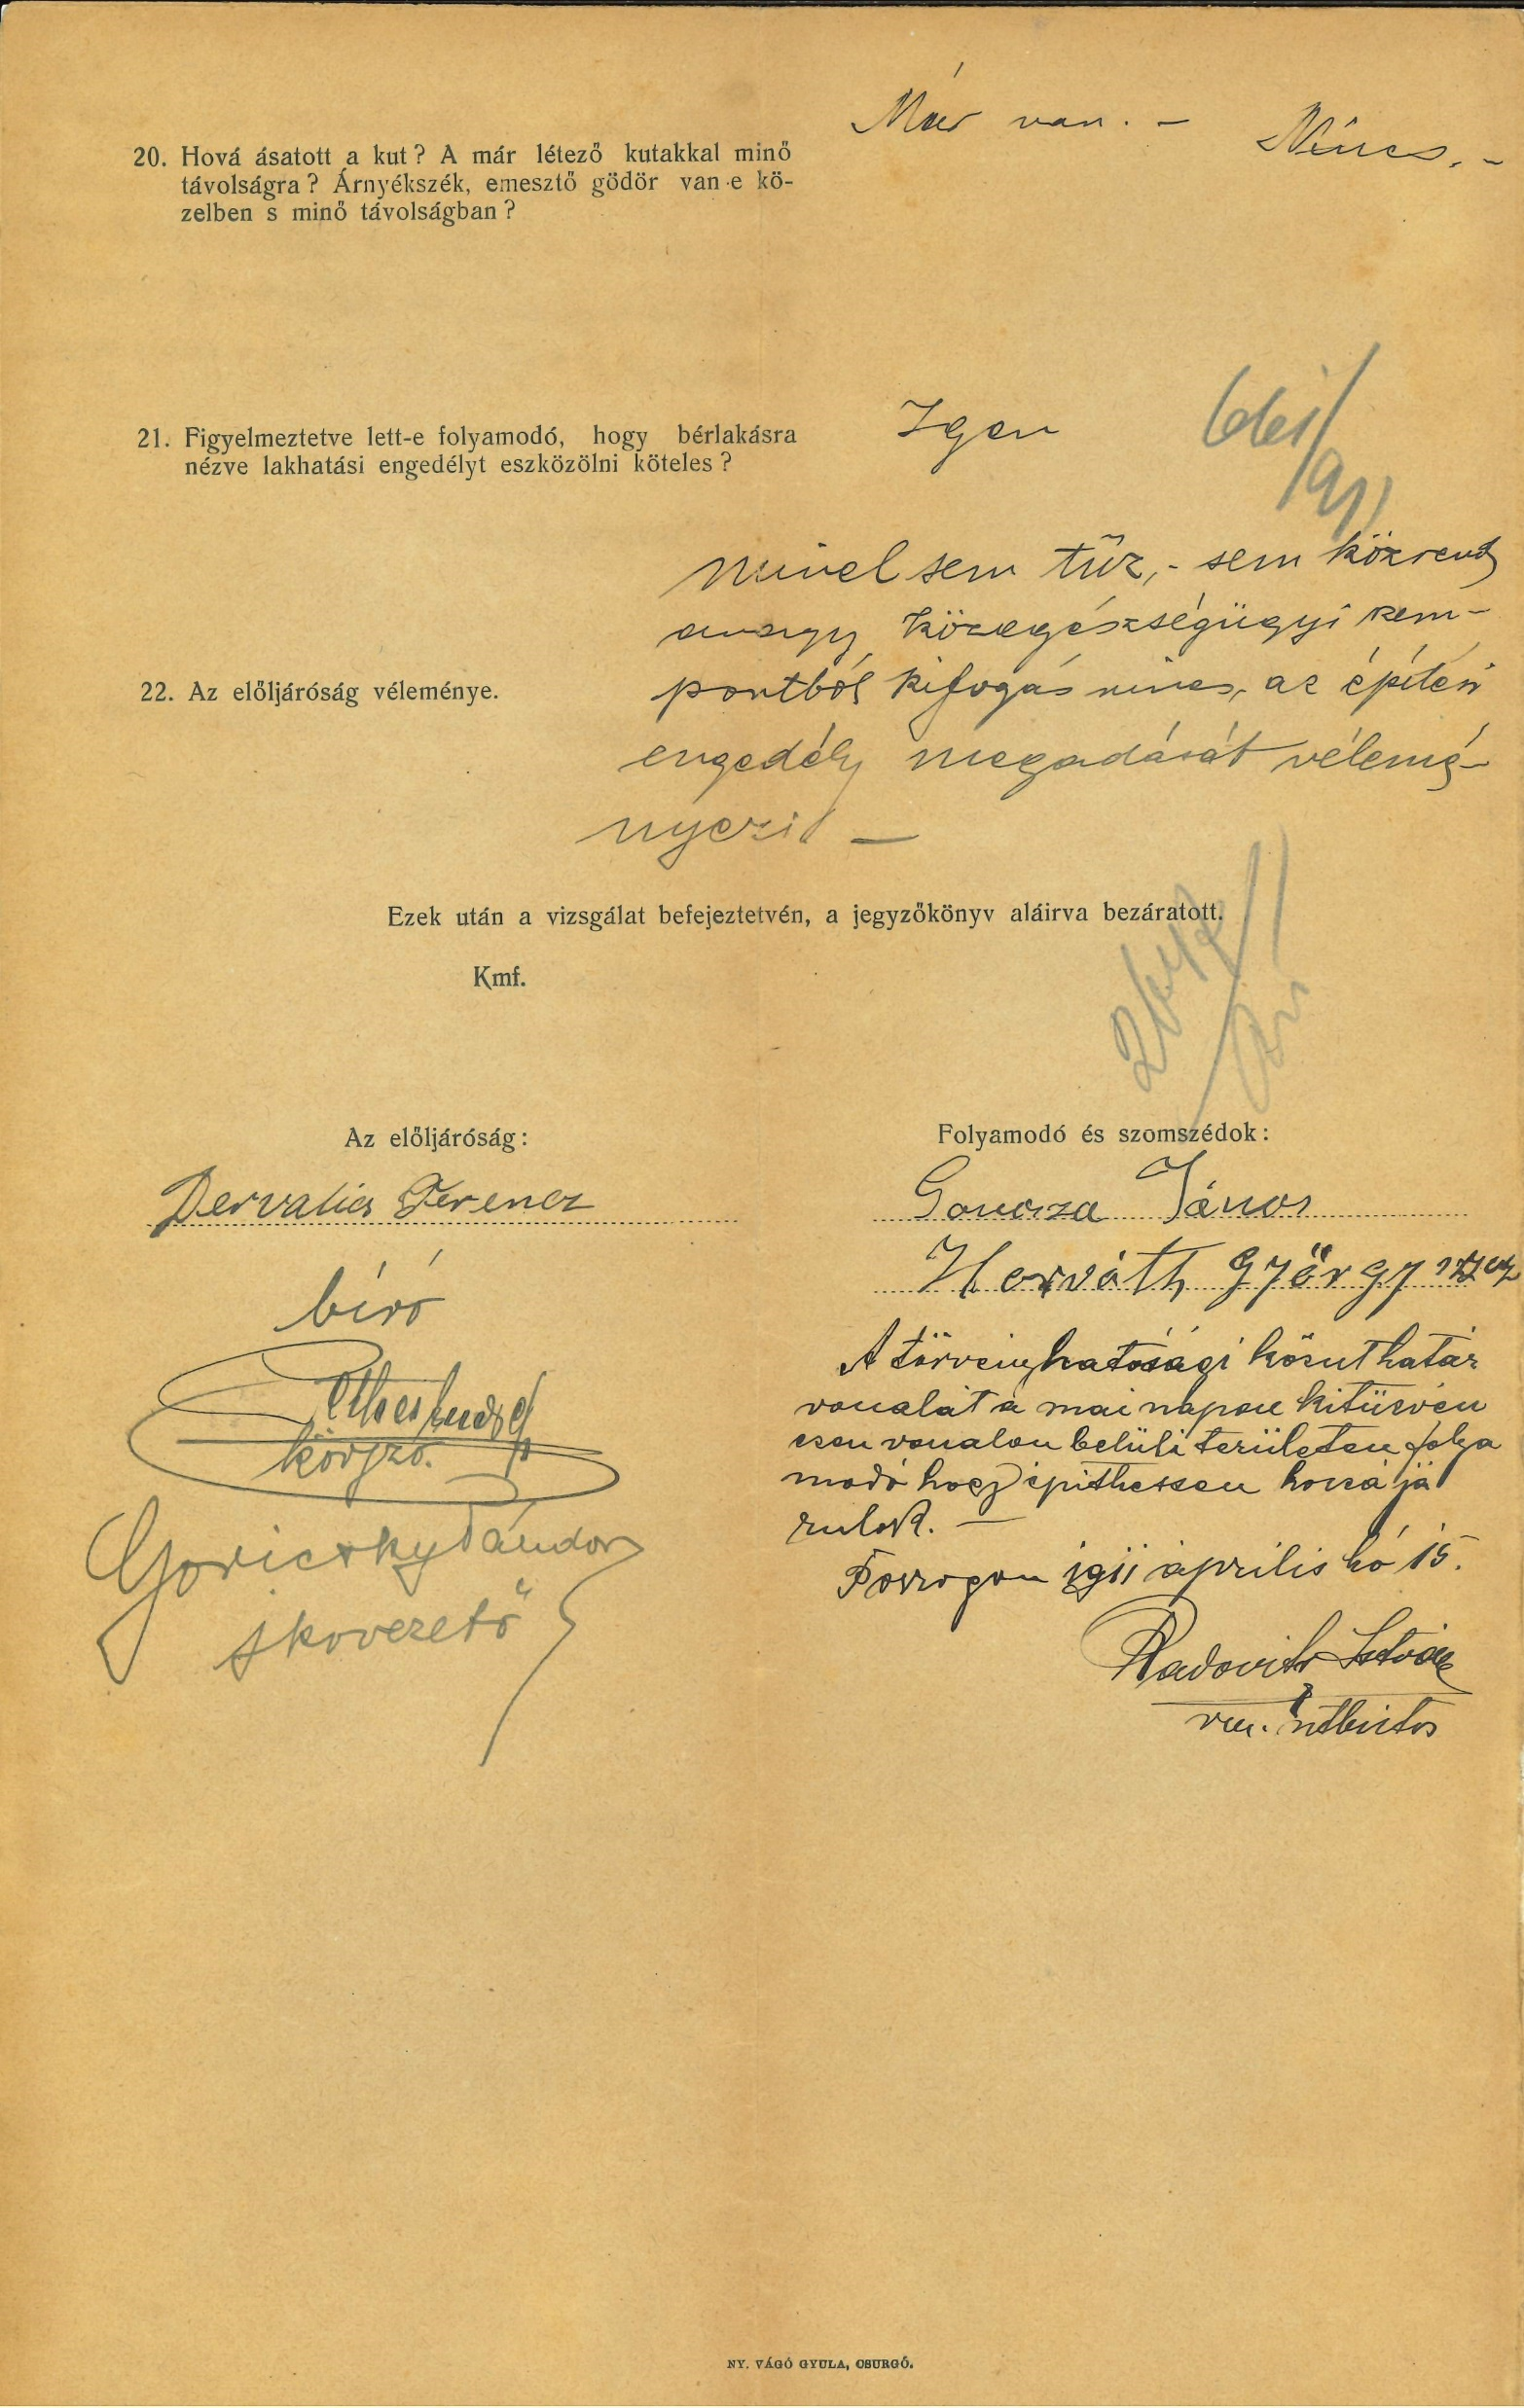 Már van. – Nincs. –
20. Hová ásatott a kut? A már létező kutakkal minő
távolságra? Árnyékszék, emesztő gödör van-e kö-
zelben s minő távolságban?
21. Figyelmeztetve lett-e folyamodó, hogy bérlakásra
nézve lakhatási engedélyt eszközölni köteles?
Igen
mivel sem tűz,- sem közrend
avagy közegészségügyi szem-
22. Az előljáróság véleménye.
pontból kifogás nincs, az építési
engedély megadását vélemé-
nyezi –
Ezek után a vizsgálat befejeztetvén, a jegyzőkönyv aláirva bezáratott.
Kmf.
Az előljáróság:
Dervalics Ferencz
biró
körjző.
Goricsky Sándor
Folyamodó és szomszédok:
Goncza János
Horváth György
A törvényhatósági közut határ
vonalát a mai napon kitüzvén
ezen vonalon belüli területen folya
modó hogy épithessen hozzá já
rulok. –
Porrogon 1911 április hó 15.
Radovits István
vm. utbiztos
NY. VÁGÓ GYULA, CSURGÓ.